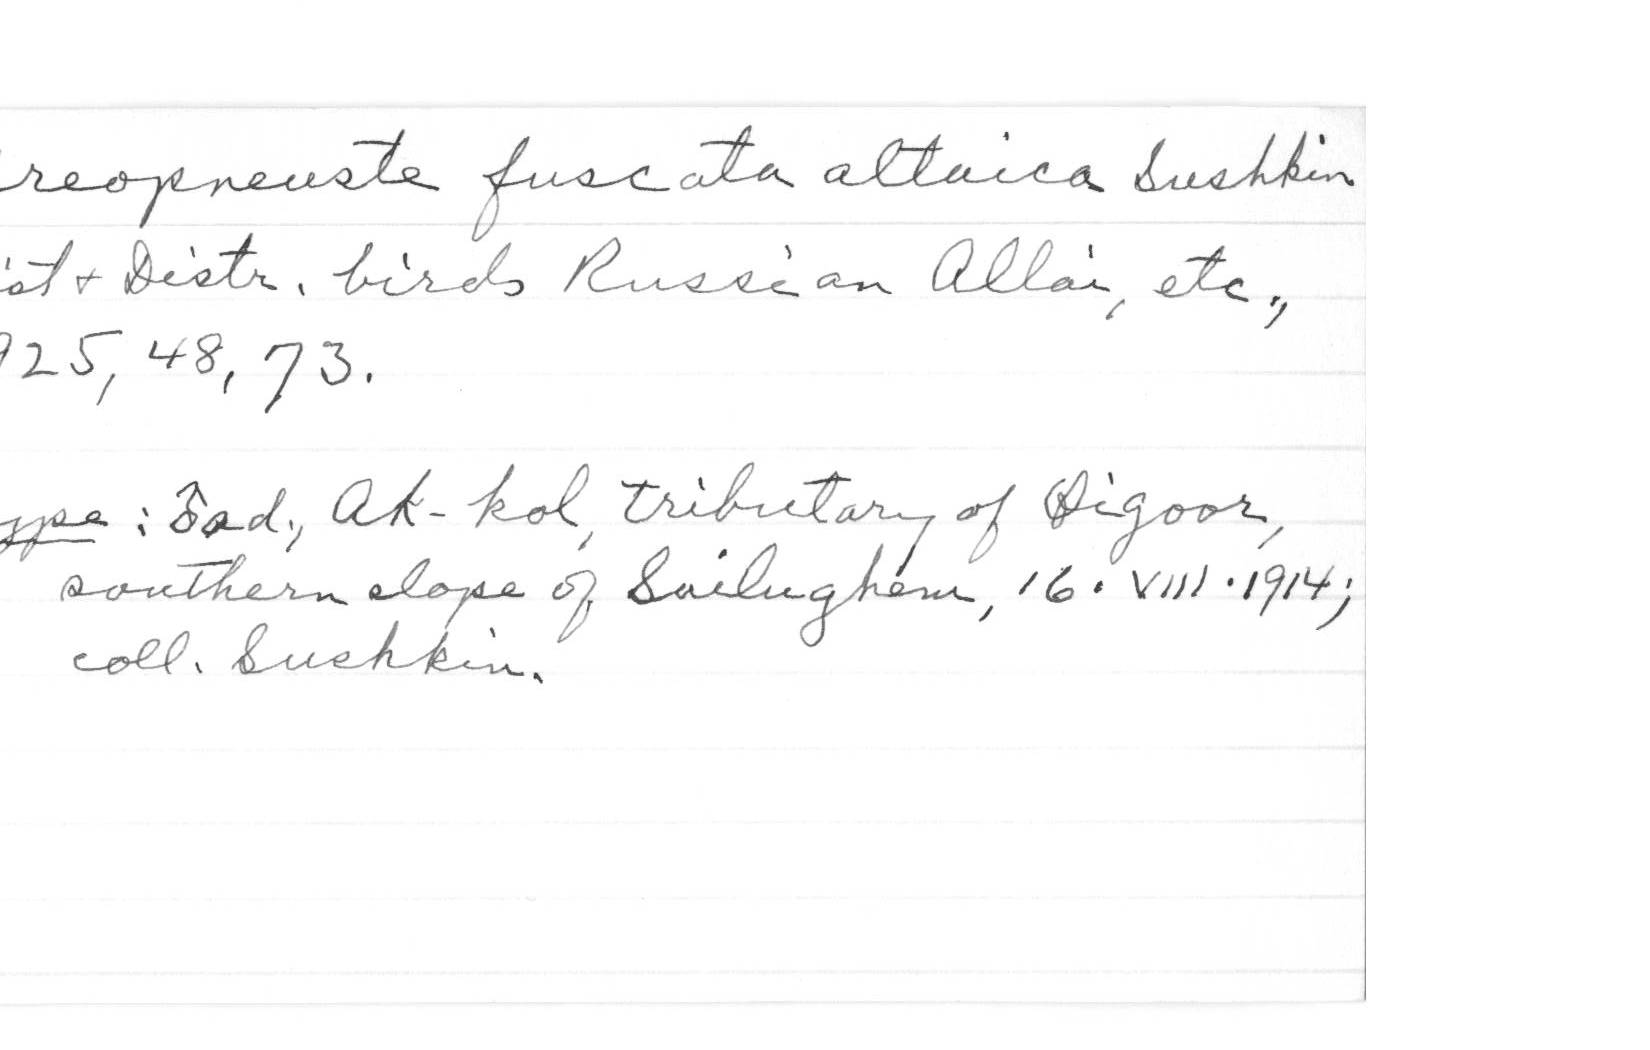 reopneuste fuscata altaica Sushkin
ist + Distr. birds Russian Altai, etc.,
925, 48, 73.
ype : ♂ ad., Ak-kol, tributary of Oigoor,
southern slope of Sailughem, 16.VIII.1914;
coll. Sushkin.